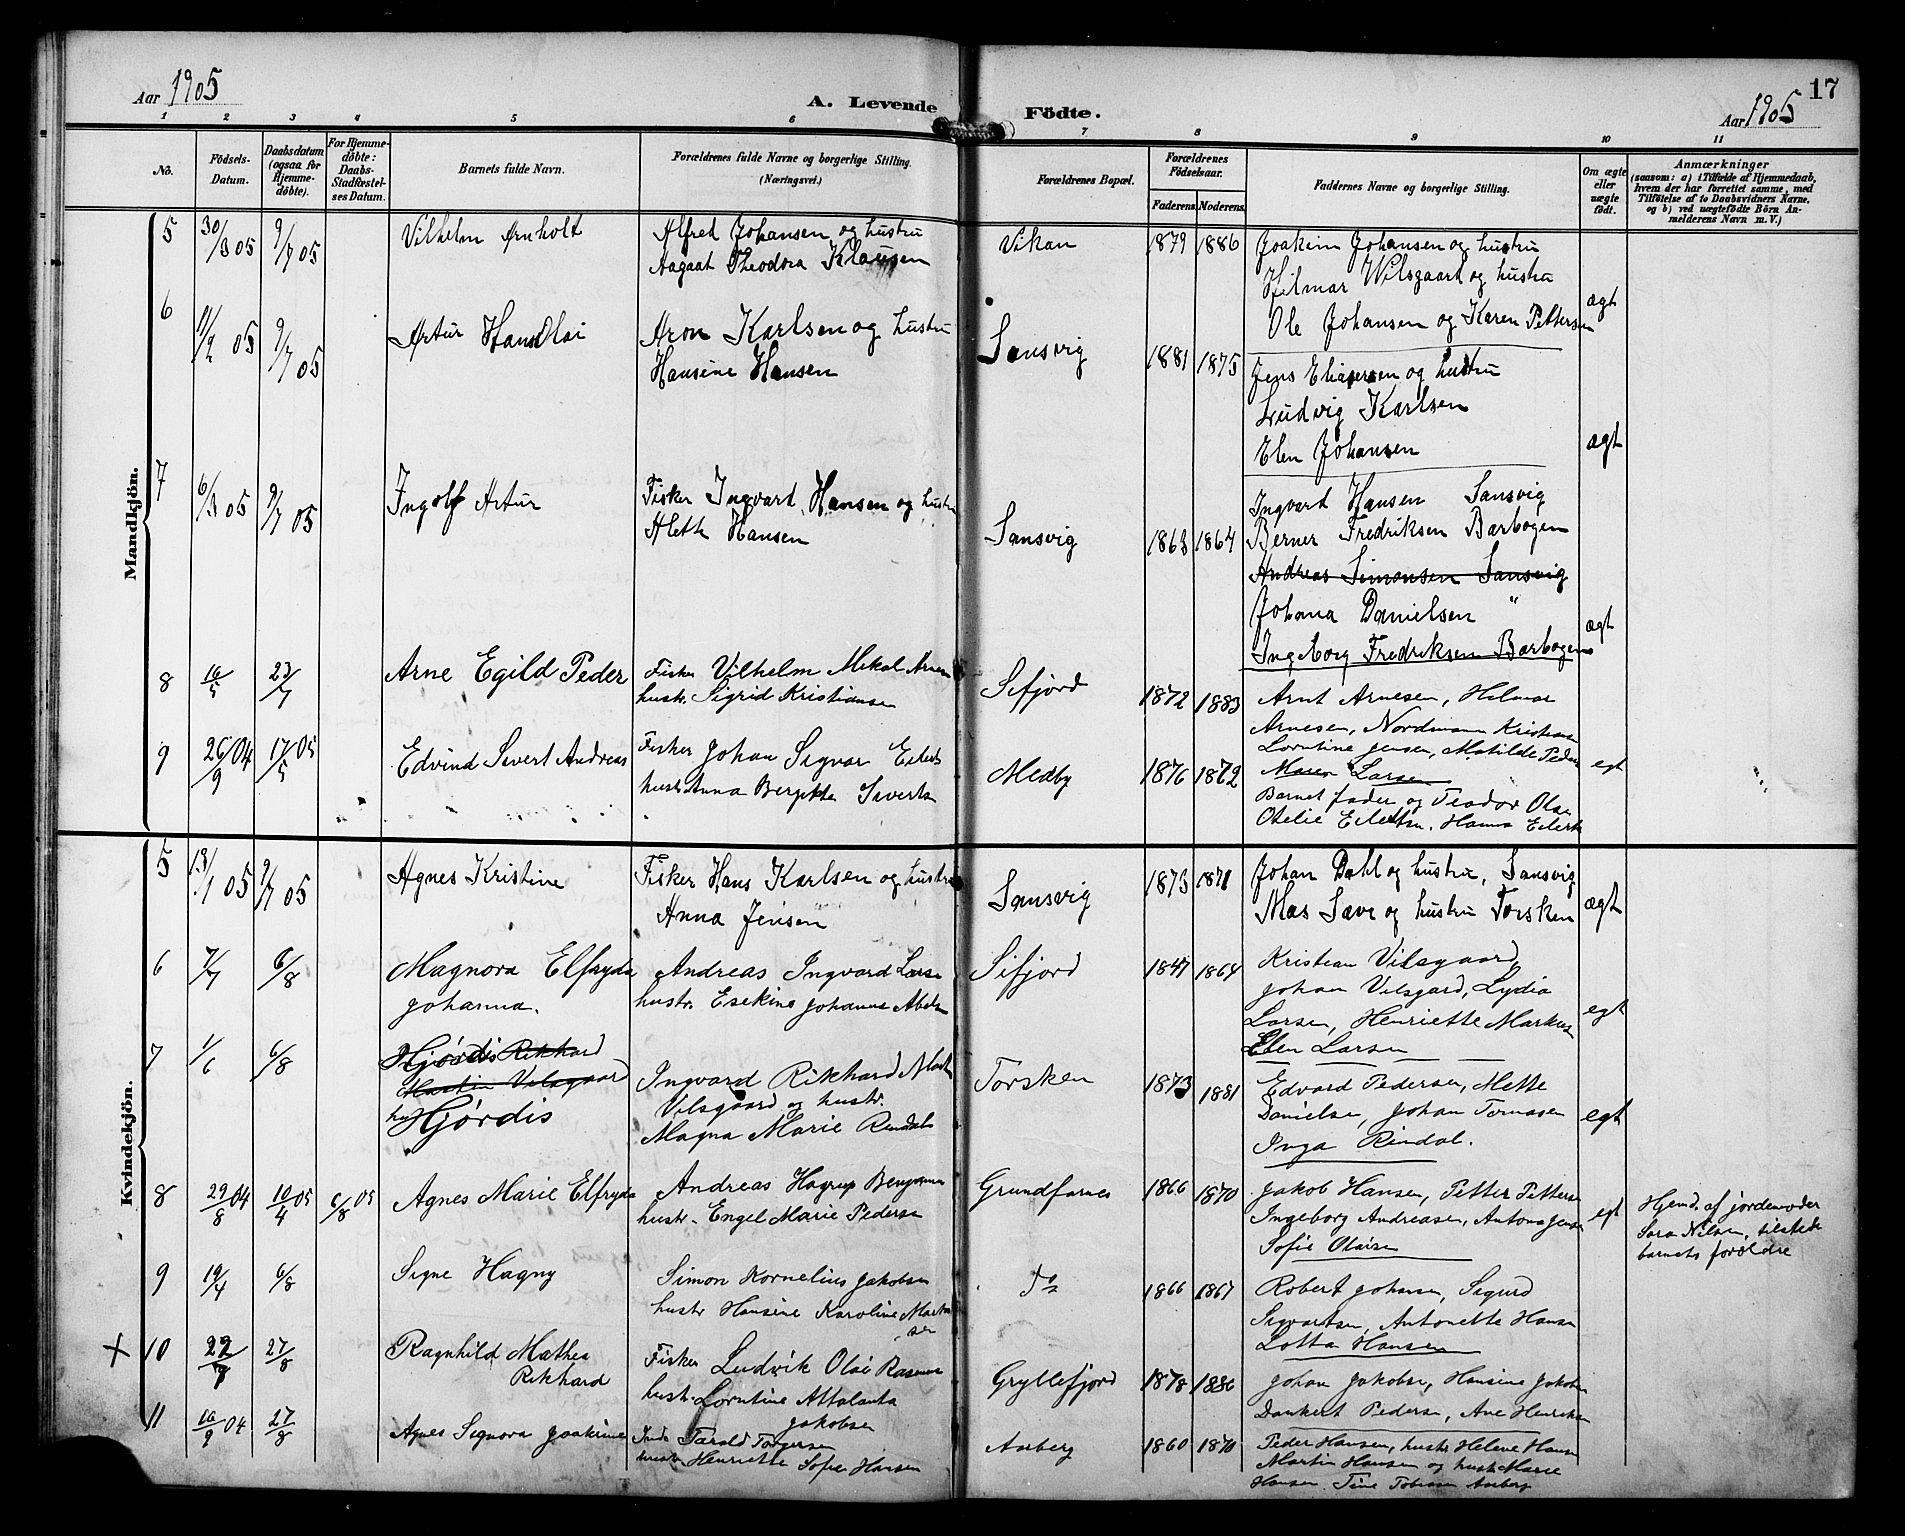 Aar 1905
A. Levende
Födte.
17
Aar 1905
1 2 3 4 5 6 7 8 9 10 11
No.
Födsels-
Datum.
Daabsdatum
(ogsaa for
Hjemme-
döbte).
For Hjemme-
döbte:
Daabs-
Stadfæstel-
ses Datum.
Barnets fulde Navn.
Forældrenes fulde Navne og borgerlige Stilling.
(Næringsvei.)
Forældrenes Bopæl.
Forældrenes
Födselsaar.
Faderens. Moderens.
Faddernes Navne og borgerlige Stilling.
Om ægte
eller
uægte
födt.
Anmærkninger
(saasom: a) i Tilfælde af Hjemmedaab,
hvem der har forrettet samme, med
Tilföielse af to Daabsvidners Navne,
og b) ved uægtefödte Börn An-
melderens Navn m. V.)
Mandkjön.
5 30/3 05 9/7 05 Vilhelm Arnholt
Alfred Johansen og hustru
Aagaat Theodora Klausen
Vikan 1879 1886
Joakim Johansen og hustru
Hilmar Wilsgaard og hustru
Ole Johansen og Karen Pettersen
ægt
6 11/2 05 9/7 05 Artur Hans Olai
Aron Karlsen og hustru
Hansine Hansen
Sansvig 1881 1875
Jens Eliasersen og hustru
Ludvig Karlsen
Elen Johansen
ægt
7 6/3 05 9/7 05 Ingolf Artur
Fisker Ingvard Hansen og hustru
Alette Hansen
Sansvig 1863 1864
Ingvard Hansen Sansvig
Berner Fredriksen Barbogen
Andreas Simonsen Sansvig
Johana Danielsen "
Ingeborg Fredriksen Barbogen
ægt
8 16/5 23/7 Arne Egild Peder
Fisker Vilhelm Mikal Arnesen
hustr. Sigrid Kristiansen
Sifjord 1872 1883
Arnt Arnesen, Hilmar
Arnesen, Nordmann Kristiansen
Lorntine Jensen, Matilde Peder
Maren Larsen
egt
9 26/9 04 17/5 05 Edvind Sivert Andreas
Fisker Johan Sigvar Eilerts
hustr. Anna Bergitte Siverts
Medby 1876 1872
Barnet fader og Teodor Olsen
Otelie Eilertsen. Hanna Eilerts
Kvindekjön.
5 13/1 05 9/7 05 Agnes Kristine
Fisker Hans Karlsen og hustru
Anna Jensen
Sansvig 1873 1871
Johan Dahl og hustru, Sansvig
Mas Save og hustru Torsken
ægt
6 7/7 6/8 Magnora Elfryda
Johanna.
Andreas Ingvard Larsen
hustr. Esekine Johanna Abels
Sifjord 1847 1864
Kristian Vilsgaard,
Johan Vilsgard, Lydia
Larsen, Henriette Markus
Elen Larsen
egt
7 1/6 6/8 Hjördis Rikhard
Martin Vilsgaard
hu Hjördis
Ingvard Rikhard Martin
Vilsgaard og hustr.
Magna Marie Rindal
Torsken 1873 1881
Edvard Pedersen, Mette
Danielsen, Johan Tomasen
Inga Rindal.
egt
8 29/8 04 10/4 05 6/8 05 Agnes Marie Elfryda
Andreas Hagrup Benjamin
hustr. Engel Marie Pedersen
Grundfarnes 1866 1870
Jakob Hansen, Petter Petters
Ingeborg Andreasen, Antona Jensen
Sofie Olaisen
egt
Hjemd. af jordemoder
Sara Nilsen, tilstede
barnets foreldre
9 19/4 6/8 Signe Hagny
Simon Kornelius Jakobsen
hustr Hansine Karoline Mortensen
Do 1866 1867
Robert Johansen, Sigurd
Sigvartsen, Antonette Hansen
Lotta Hansen
+ 10 22/7 27/8 Ragnhild Mathea
Rikhard
Fisker Ludvik Olai Rasmus
hustr. Lorntine Attalanta
Jakobsen
Gryllefjord 1878 1886
Johan Jakobsen, Hansine Jakobsen
Dankert Pedersen, Ane Henriksen
11 16/9 04 27/8 Agnes Signora Joakrine
Inds Tarald Torgersen
hustr Henriette Sofie Hansen
Aaberg 1860 1870
Peder Hansen, hustr Helene Hansen
Martin Hansen og hust. Marie
Hansen. Tine Tobiasen Aaberg